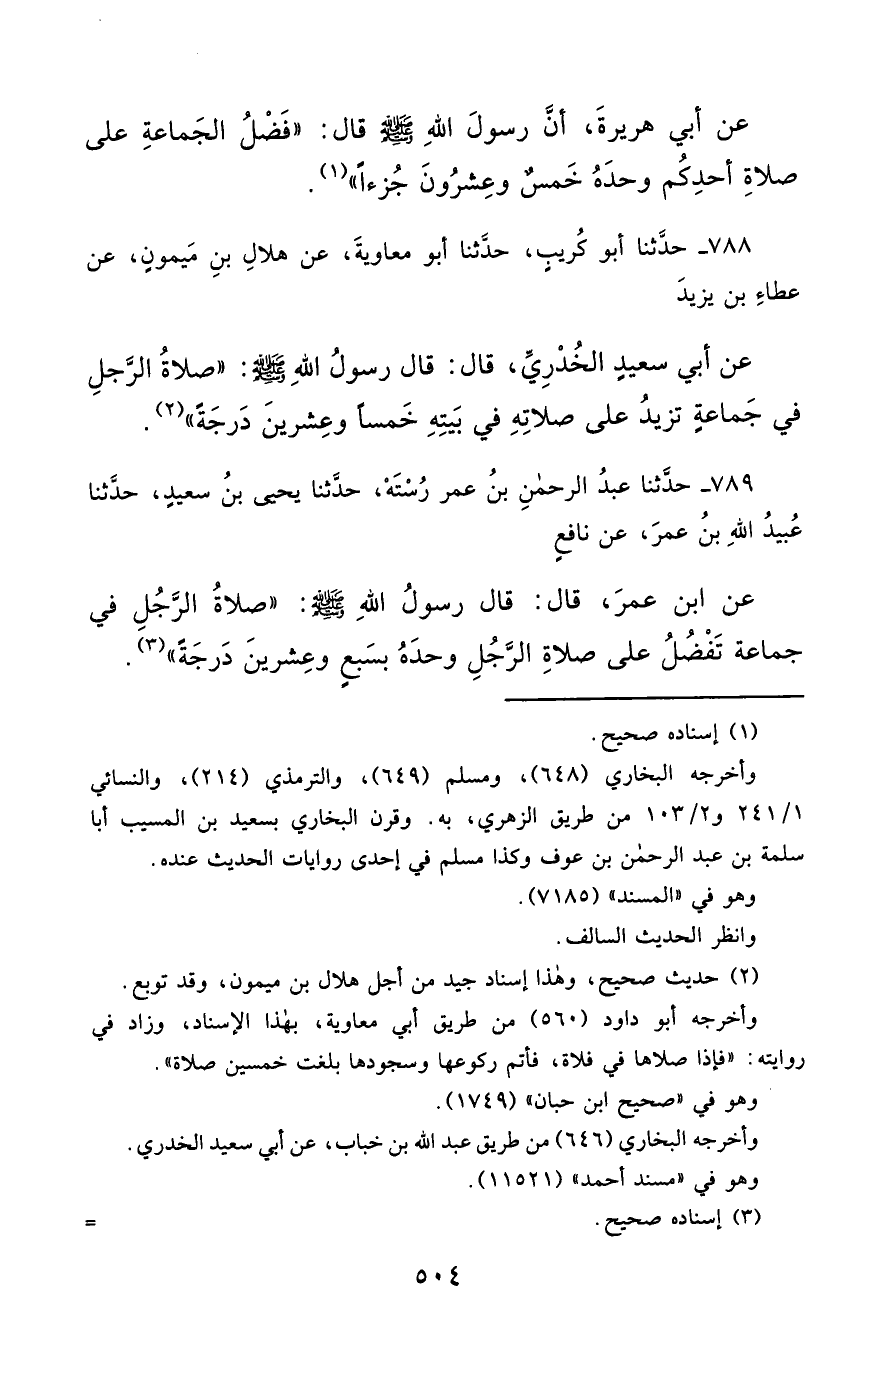 عن أبي هريرةَ، أنَّ رسولَ اللهِ ﷺ قال: «فَضْلُ الجَماعةِ على
صلاةِ أحدِكُم وحدَهُ خَمسٌ وعِشرُونَ جُزءاً»(١).
٧٨٨ـ حدَّثنا أبو كُريبٍ، حدَّثنا أبو معاويةَ، عن هلالِ بنِ مَيمونٍ، عن
عطاءِ بن يزيدَ
عن أبي سعيدٍ الخُدْرِيِّ، قال: قال رسولُ اللهِ ﷺ: «صلاةُ الرَّجلِ
في جَماعةٍ تزيدُ على صلاتِهِ في بَيتِهِ خَمساً وعِشرينَ دَرجَةً»(٢).
٧٨٩ـ حدَّثنا عبدُ الرحمٰنِ بنُ عمر رُسْتَهْ، حدَّثنا يحيى بنُ سعيدٍ، حدَّثنا
عُبيدُ اللهِ بنُ عمرَ، عن نافعٍ
عن ابن عمرَ، قال: قال رسولُ اللهِ ﷺ: «صلاةُ الرَّجُلِ في
جماعة تَفْضُلُ على صلاةِ الرَّجُلِ وحدَهُ بسَبعٍ وعِشرينَ دَرجَةً»(٣).
(١) إسناده صحيح.
وأخرجه البخاري (٦٤٨)، ومسلم (٦٤٩)، والترمذي (٢١٤)، والنسائي
٢٤١/١ و١٠٣/٢ من طريق الزهري، به. وقرن البخاري بسعيد بن المسيب أبا
سلمة بن عبد الرحمٰن بن عوف وكذا مسلم في إحدى روايات الحديث عنده.
وهو في «المسند» (٧١٨٥).
وانظر الحديث السالف.
(٢) حديث صحيح، وهٰذا إسناد جيد من أجل هلال بن ميمون، وقد توبع.
وأخرجه أبو داود (٥٦٠) من طريق أبي معاوية، بهٰذا الإسناد، وزاد في
روايته: «فإذا صلاها في فلاة، فأتم ركوعها وسجودها بلغت خمسين صلاة».
وهو في «صحيح ابن حبان» (١٧٤٩).
وأخرجه البخاري (٦٤٦) من طريق عبد الله بن خباب، عن أبي سعيد الخدري.
وهو في «مسند أحمد» (١١٥٢١).
(٣) إسناده صحيح. =
٥٠٤